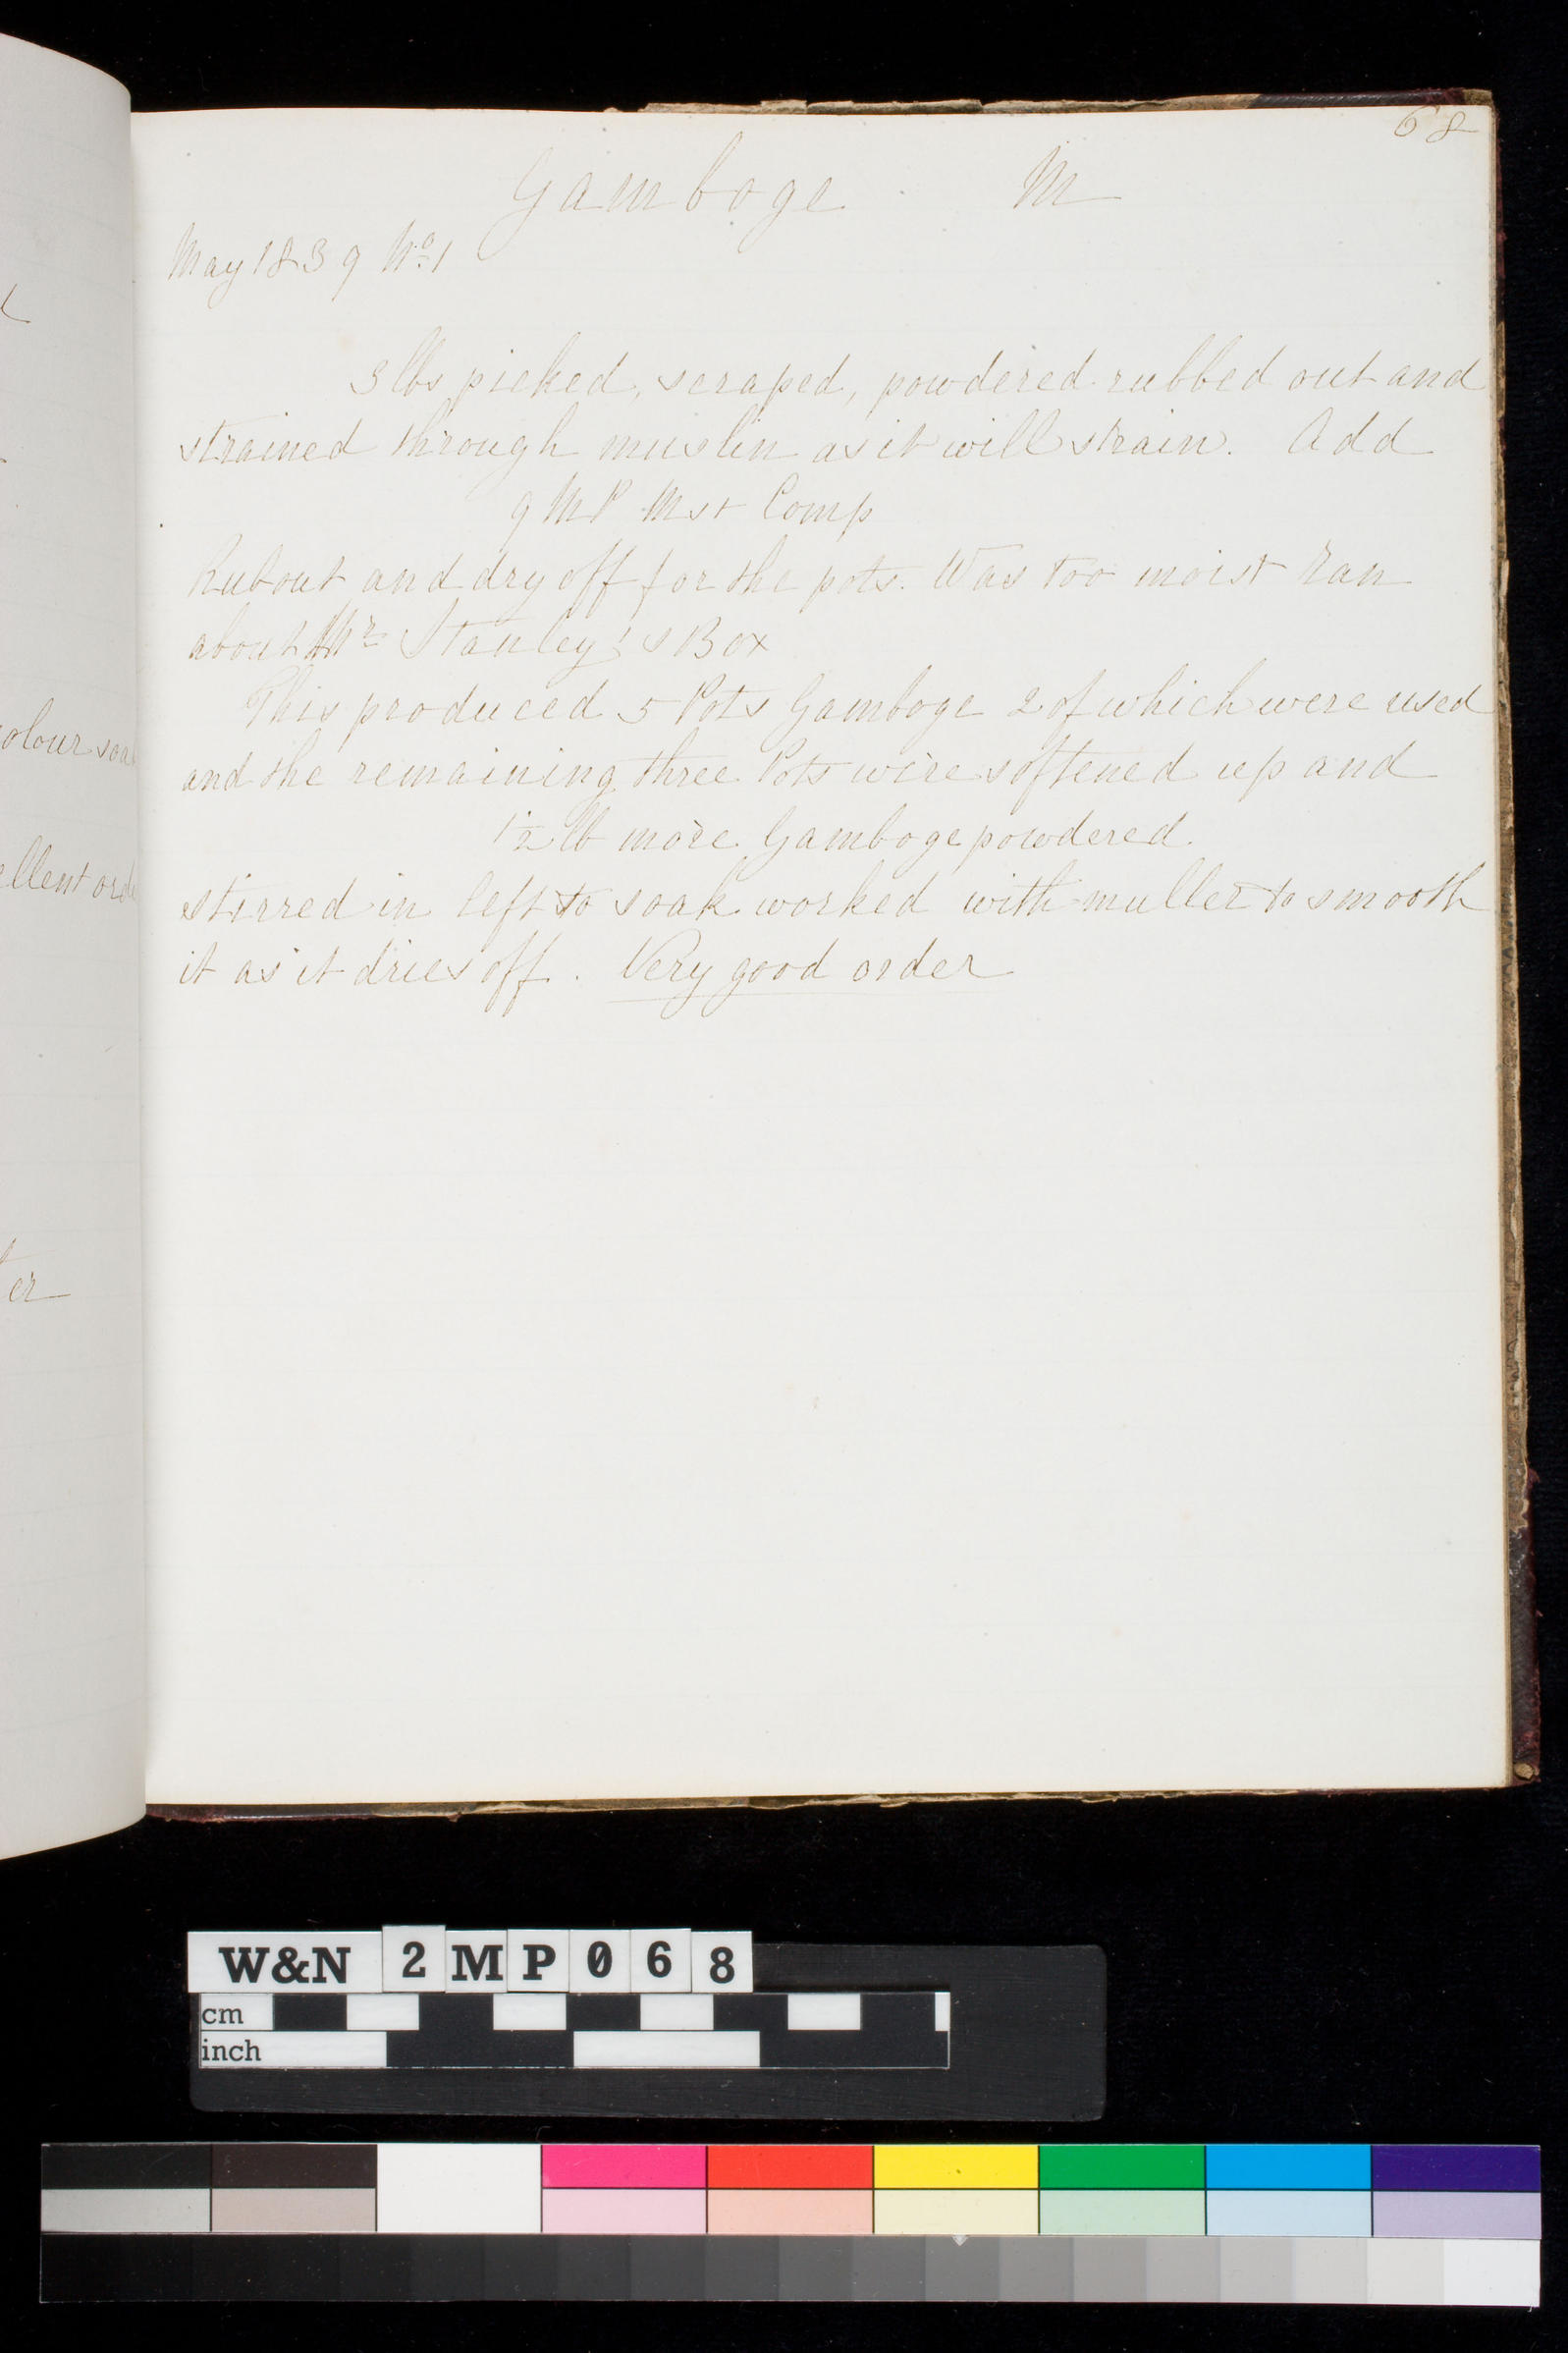 68
Gamboge M
May 1839 No 1
3 lbs picked, scraped, powdered rubbed out and
strained through muslin as it will strain. Add
9 MP Mst Comp
Rub out and dry off for the pots. Was too moist ran
about Mr Stanley's Box
This produced 5 Pots Gamboge 2 of which were used
and the remaining three Pots were softened up and
1/2 lb more Gamboge powdered.
stirred in left to soak worked with muller to smooth
it as it dries off. Very good order
olour soa
ellent orde
er
W&N 2MP068
cm
inch